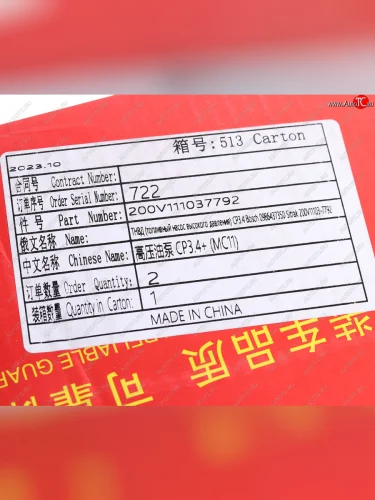 箱号:513 Carton
2023.10
合同号 Contract Number:
订单序号 Order Serial Number: 722
件号 Part Number: 200V111037792
俄文名称 Name: ТНВД (топливный насос высокого давления) CP3.4 Bosch 0986437350 Sitrak 200V11103-7792
中文名称 Chinese Name: 高压油泵 CP3.4+ (MC11)
订单数量 Order Quantity: 2
装箱数量 Quantity in Carton: 1
MADE IN CHINA
装车品质
RELIABLE GUAR
可靠